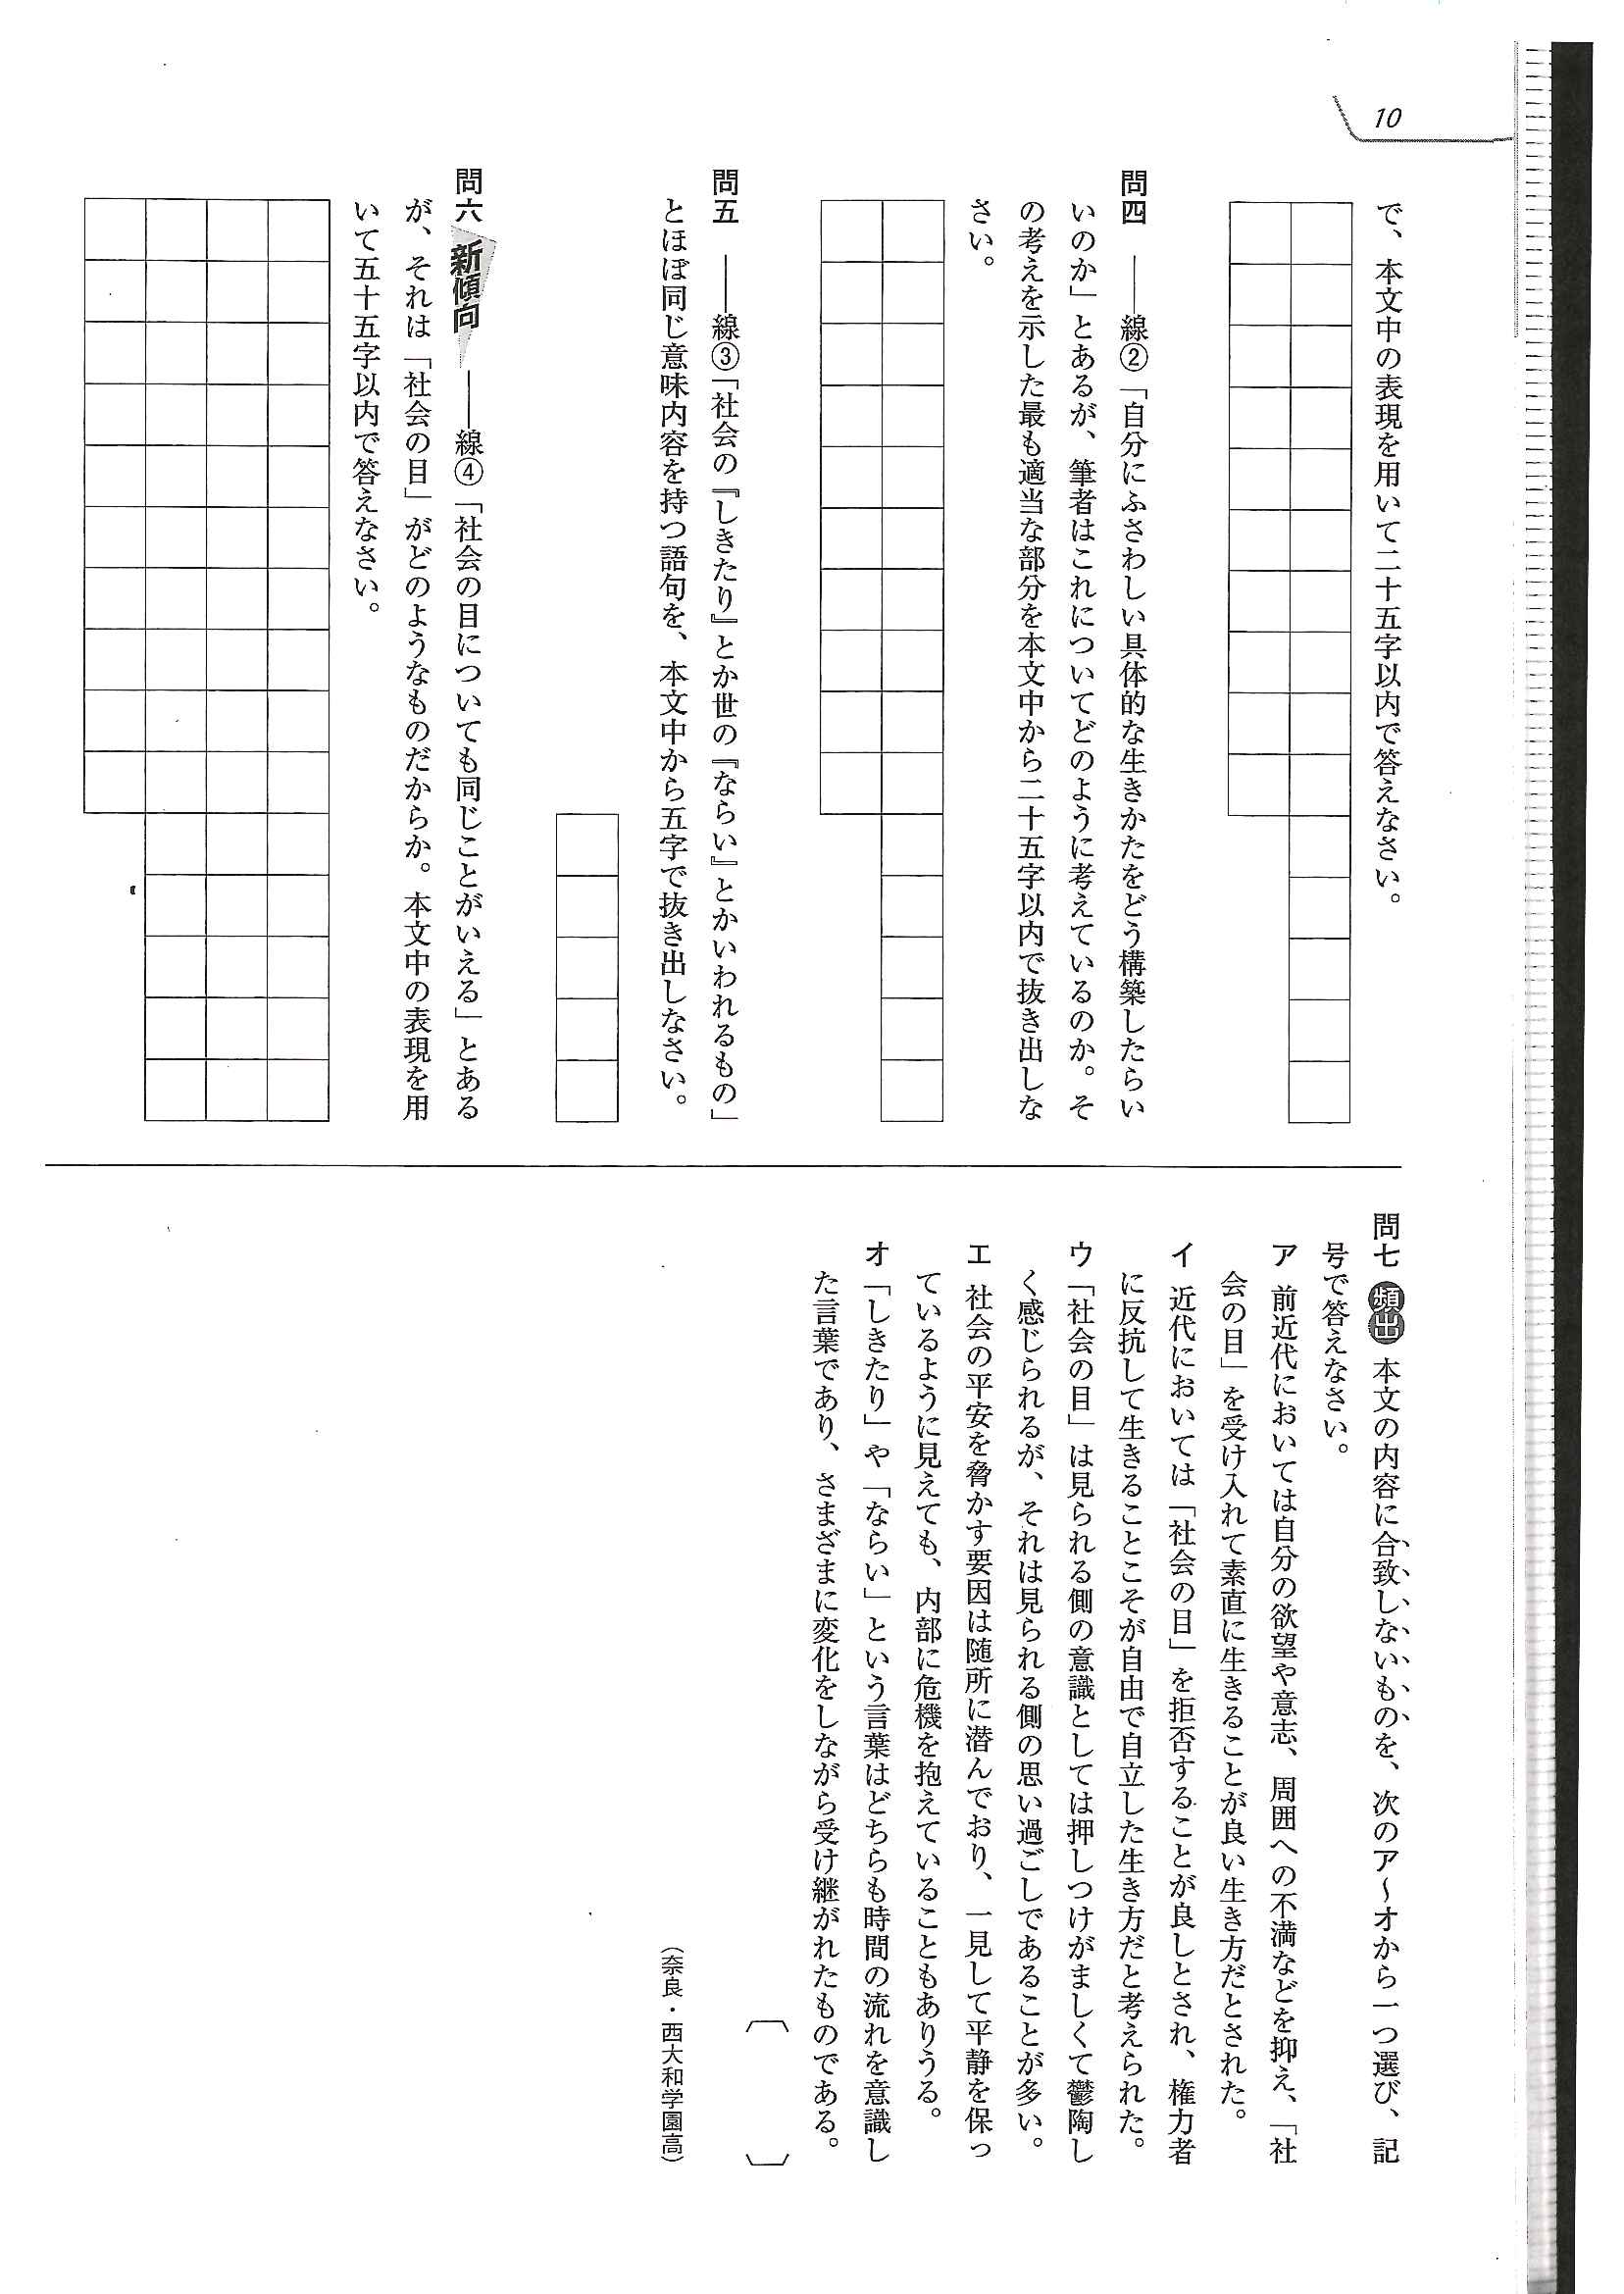 10
で、本文中の表現を用いて二十五字以内で答えなさい。
問四 ――線②「自分にふさわしい具体的な生きかたをどう構築したらい
いのか」とあるが、筆者はこれについてどのように考えているのか。そ
の考えを示した最も適当な部分を本文中から二十五字以内で抜き出しな
さい。
問五 ――線③「社会の『しきたり』とか世の『ならい』とかいわれるもの」
とほぼ同じ意味内容を持つ語句を、本文中から五字で抜き出しなさい。
問六 新傾向 ――線④「社会の目についても同じことがいえる」とある
が、それは「社会の目」がどのようなものだからか。本文中の表現を用
いて五十五字以内で答えなさい。
問七 頻出 本文の内容に合致しないものを、次のア~オから一つ選び、記
号で答えなさい。
ア 前近代においては自分の欲望や意志、周囲への不満などを抑え、「社
会の目」を受け入れて素直に生きることが良い生き方だとされた。
イ 近代においては「社会の目」を拒否することが良しとされ、権力者
に反抗して生きることこそが自由で自立した生き方だと考えられた。
ウ 「社会の目」は見られる側の意識としては押しつけがましくて鬱陶し
く感じられるが、それは見られる側の思い過ごしであることが多い。
エ 社会の平安を脅かす要因は随所に潜んでおり、一見して平静を保っ
ているように見えても、内部に危機を抱えていることもありうる。
オ 「しきたり」や「ならい」という言葉はどちらも時間の流れを意識し
た言葉であり、さまざまに変化をしながら受け継がれたものである。
〔 〕
(奈良・西大和学園高)